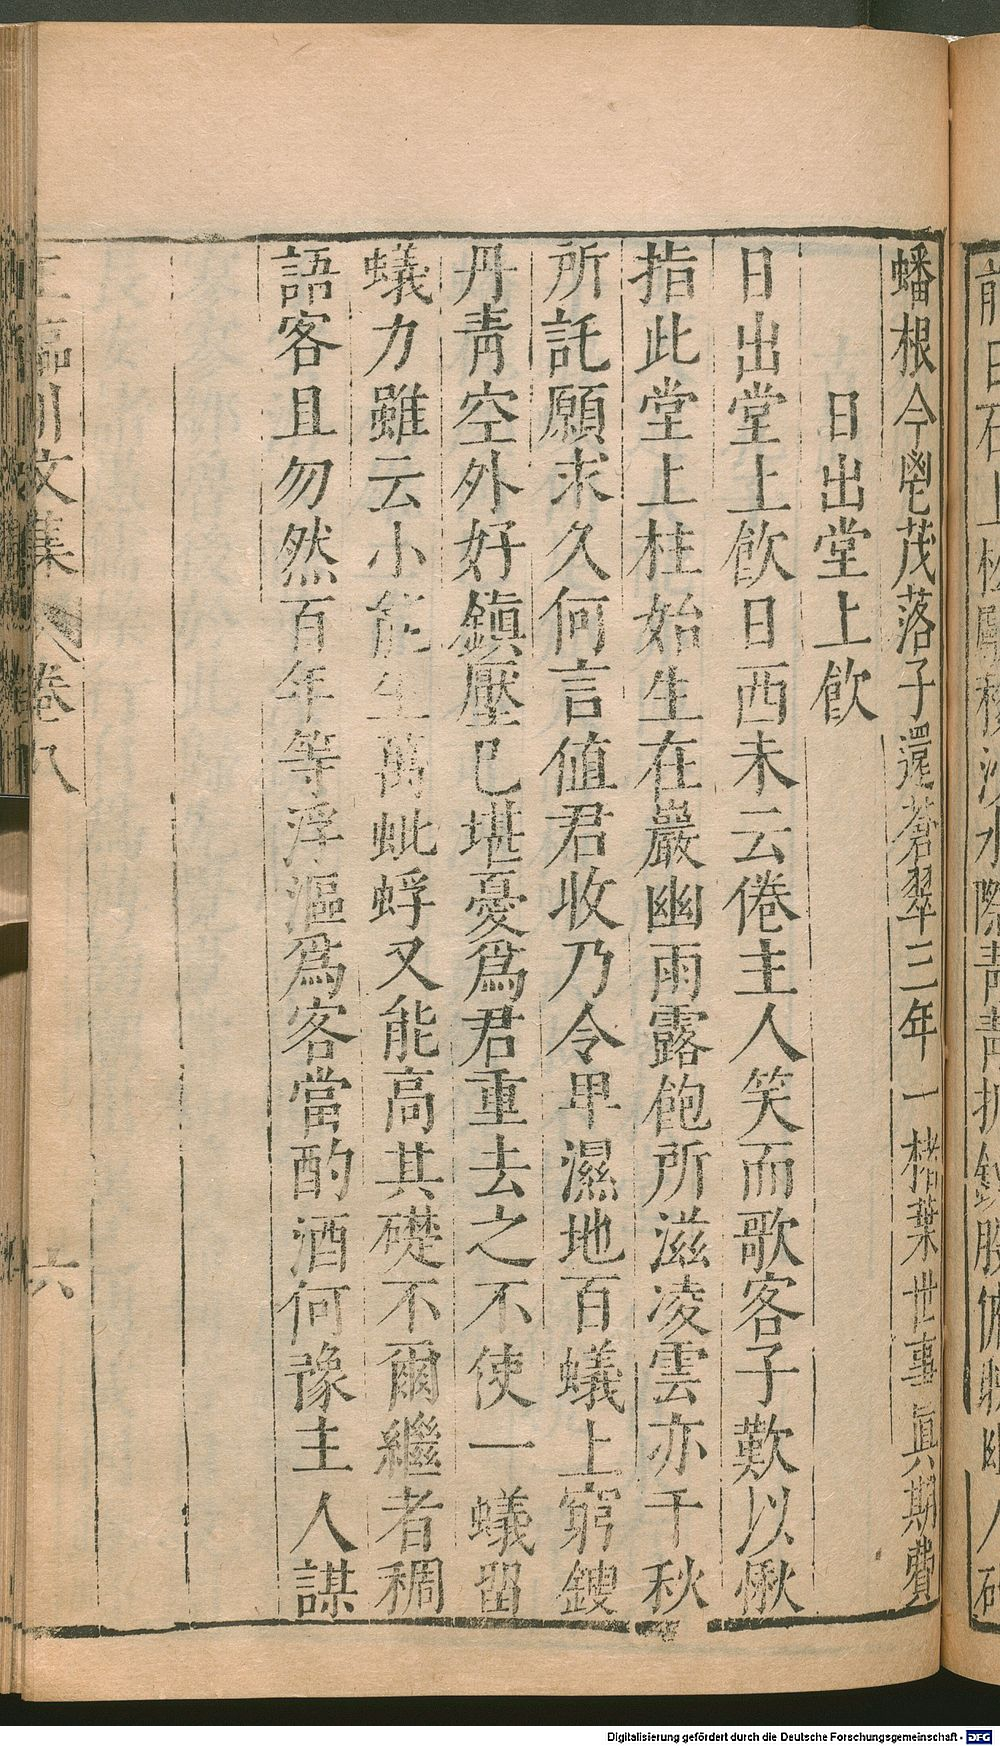 蟠根今鬯茂落子還蒼翠三年一楮葉世事眞期費
日出堂上飮
日出堂上飮日西未云倦主人笑而歌客子歎以愀
指此堂上柱始生在巖幽雨露飽所滋凌雲亦千秋
所託願求久何言値君收乃令卑濕地百蟻上窮鎪
丹靑空外好鎭壓已堪憂爲君重去之不使一蟻留
蟻力雖云小能生萬蚍蜉又能高其礎不爾繼者稠
語客且勿然百年等浮漚爲客當酌酒何豫主人謀
文集 卷八
六
Digitalisierung gefördert durch die Deutsche Forschungsgemeinschaft - DFG